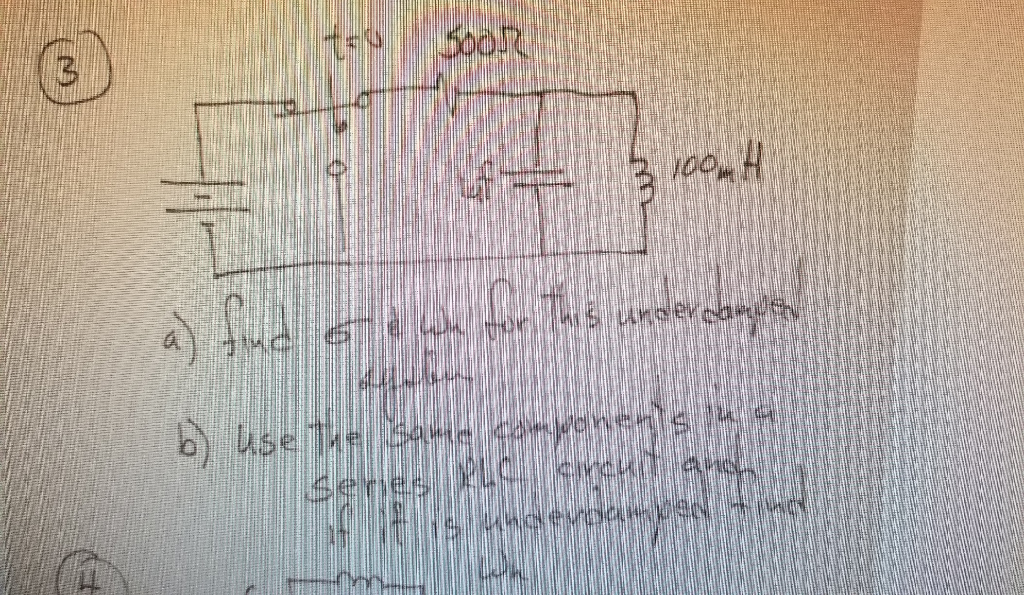 3
t=0 500Ω
100mH
a) find σ & ωn for this underdamped
system
b) use the same componen's in a
series RLC circuit and
if it is underdamped find
ωn
4